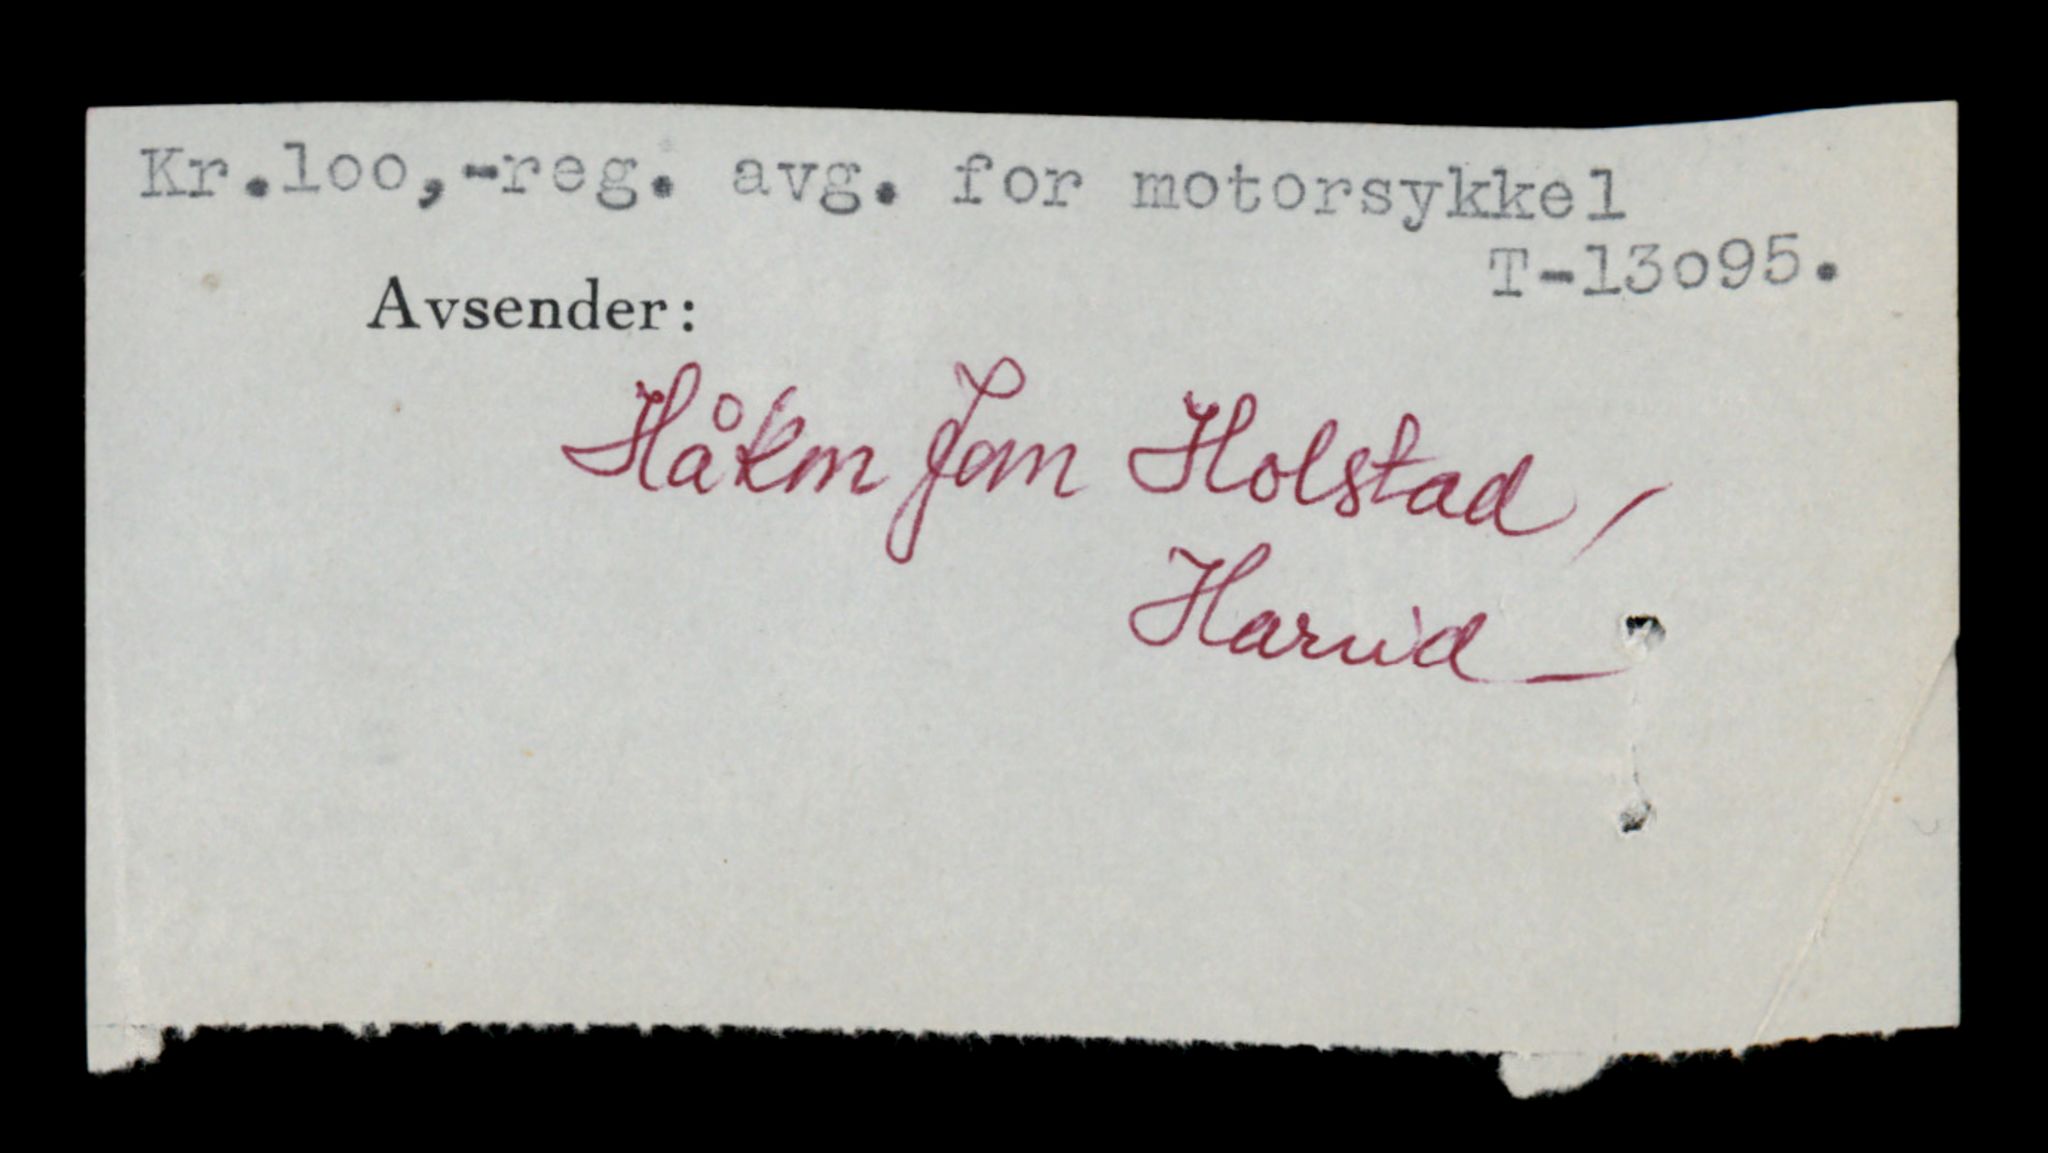 Kr.loo,-reg. avg. for motorsykkel
T-13o95.
Avsender:
Håkon Jan Holstad,
Harvid